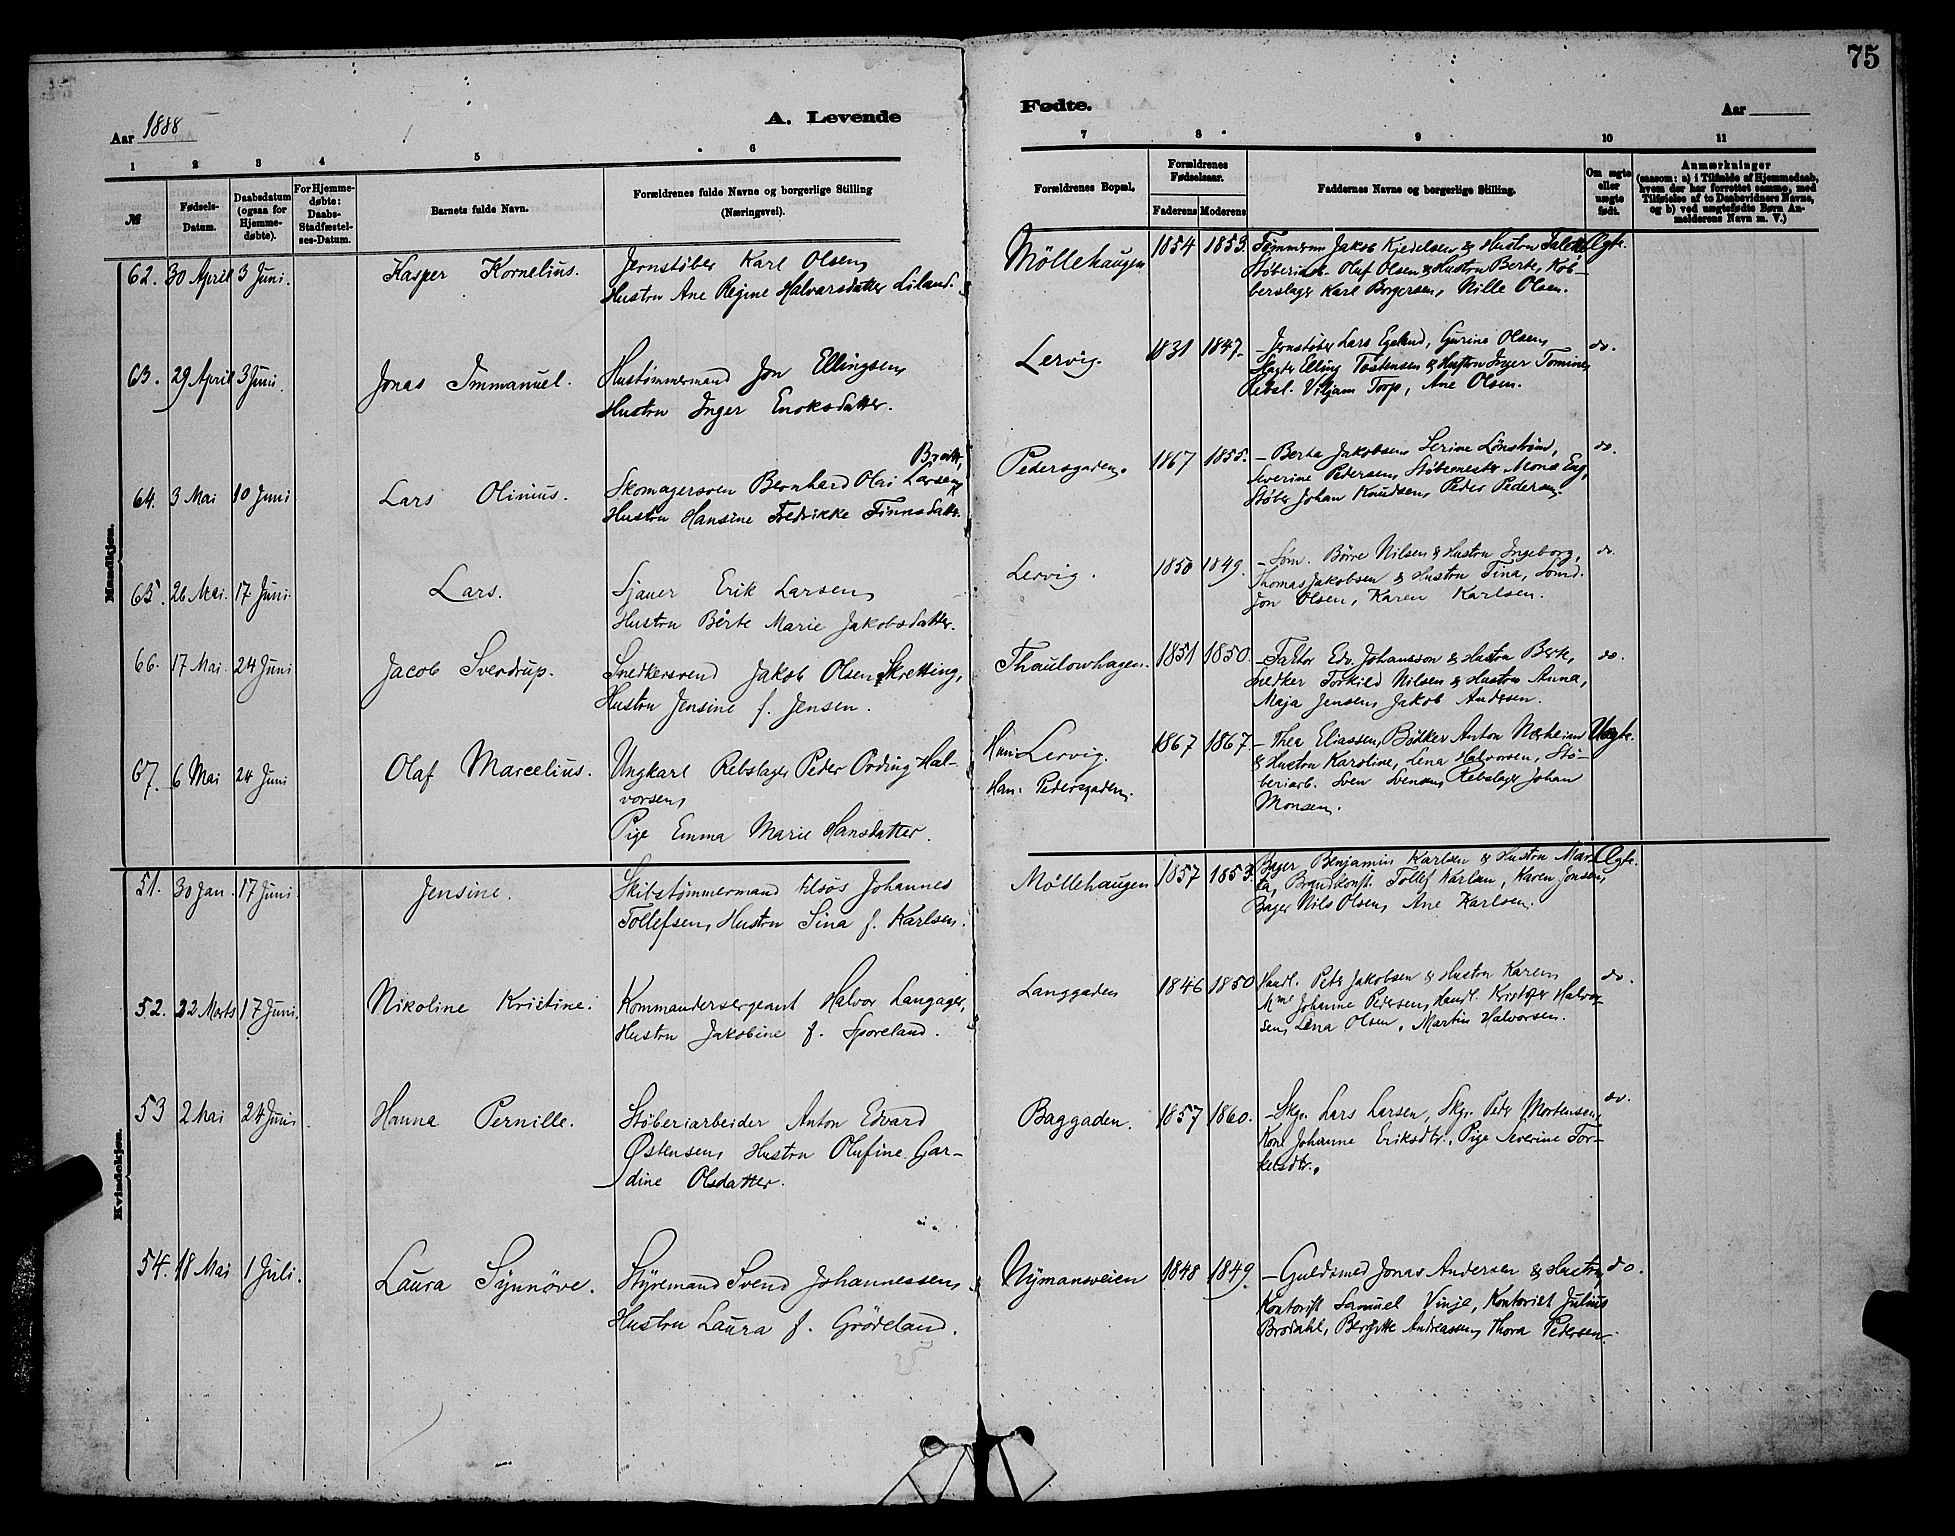 75
Aar 1888
A. Levende
Fødte.
Aar
1 2 3 4 5 6 7 8 9 10 11
№
Fødsels-
Datum.
Daabsdatum
(ogsaa for
Hjemme-
døbte).
For Hjemme-
døbte:
Daabs-
Stadfæstel-
ses-Datum.
Barnets fulde Navn.
Forældrenes fulde Navne og borgerlige Stilling
(Næringsvei).
Forældrenes Bopæl.
Forældrenes
Fødselsaar.
Faderens Moderens
Faddernes Navne og borgerlige Stilling.
Om ægte
eller
uægte
født.
Anmærkninger
(saasom: a) i Tilfælde af Hjemmedaab,
hvem der har forrettet samme, med
Tilføielse af to Daabsvidners Navne,
og b) ved uægtefødte Børn An-
melderens Navn m. V.)
Mandkjøn.
62. 30 April 3 Juni. Kasper Kornelius.
Jernstøber Karl Olsen,
Hustru Ane Regine Halvarsdatter Liland.
Möllehaugen 1854 1853.
Tømmerm Jakob Kjedelsen & Hustru
Støberiarb. Oluf Olsen & Hustru Berte, Kob-
berslager Karl Borgersen, Nille Olsen.
Ægte.
63. 29 April 3 Juni. Jonas Immanuel.
Hustømmermand Jon Ellingsen,
Hustru Inger Enoksdatter.
Lervig. 1831 1847.
- Jernstøber Lars Egelund, Gurine Olsen,
Elling Tostensen & Hustru Inger Tomine,
Rebsl. Viljam Torp, Ane Olsen.
do.
64. 3 Mai 10 Juni Lars Olinius.
Bratt,
Skomagersven Bernhard Olai Larsen,
Hustru Hansine Fredrikke Finnsdatr.
Pedersgaden. 1867 1855.
- Berta Jakobsen, Serine Lönström,
Severine Pedersen, Støbemester Mons Eng,
Støber Johan Knudsen, Peder Pedersen.
do.
65. 26 Mai. 17 Juni Lars.
Sjauer Erik Larsen,
Hustru Bërte Marie Jakobsdatter.
Lervig. 1850 1849.
- Søm. Börre Nilsen & Hustru Ingeborg,
Thomas Jakobsen & Hustru Tina, Sömd.
Jon Olsen, Karen Karlsen.
do.
66. 17 Mai. 24 Juni Jacob Sverdrup.
Snedkersvend Jakob Olsen Skretting,
Hustru Jensine f. Jensen.
Thaulowhagen. 1851 1850.
- Faktor Edv. Johansson & Hustru Berte,
snedker Torkild Nilsen & Hustru Anna,
Maja Jensen, Jakob Andersen.
do.
67. 6 Mai 24 Juni Olaf Marcelius.
Ungkarl Rebslager Peder Ording Hal-
vorsen,
Pige Emma Marie Hansdatter.
Hun: Lervig.
Han: Pedersgaden.
1867 1867.
- Thea Eliassen, Bødker Anton Næsheim
& Hustru Karoline, Lena Halvorsen, Stö-
beriarb. Sven Svensen, Rebslager Johan
Monsen.
Uægte.
Kvindekjøn.
51. 30 Jan. 17 Juni. Jensine.
Skibstømmermand Elsös Johannes
Tollefsen, Hustru Sina f. Karlsen.
Möllehaugen 1857 1853.
Bager Benjamin Karlsen & Hustru Mar-
ta, Brandkonst. Tollef Karlsen, Karen Jonsen,
Bager Nils Olsen, Ane Karlsen.
Ægte.
52. 22 Marts 17 Juni. Nikoline Kristine.
Kommandersergeant Halvor Langager,
Hustru Jakobine f. Sporeland.
Langgaden 1846 1850
Handl. Peter Jakobsen & Hustru Karen,
Mme Johanne Pedersen, Handl. Kristofer Halvor-
sen, Lena Olsen, Martin Halvorsen.
do.
53 2 Mai 24 Juni. Hanna Pernille.
Støberiarbeider Anton Edvard
Østensen, Hustru Olufine Gar-
dine Olsdatter.
Baggaden. 1857 1860.
- Skgr. Lars Larsen, Skgr. Peder Mortensen,
Kone Johanne Eriksdtr., Pige Severine Tor-
kelsdtr.
do.
54. 18 Mai 1 Juli. Laura Synnøve.
Styremand Svend Johannessen,
Hustru Laura f. Grødeland.
Nymansveien 1848 1849.
- Guldsmed Jonas Andersen & Hustru,
Kontorist Samuel Vinje, Kontorist Julius
Brodahl, Bergitte Andreassen, Thora Pedersen.
do.